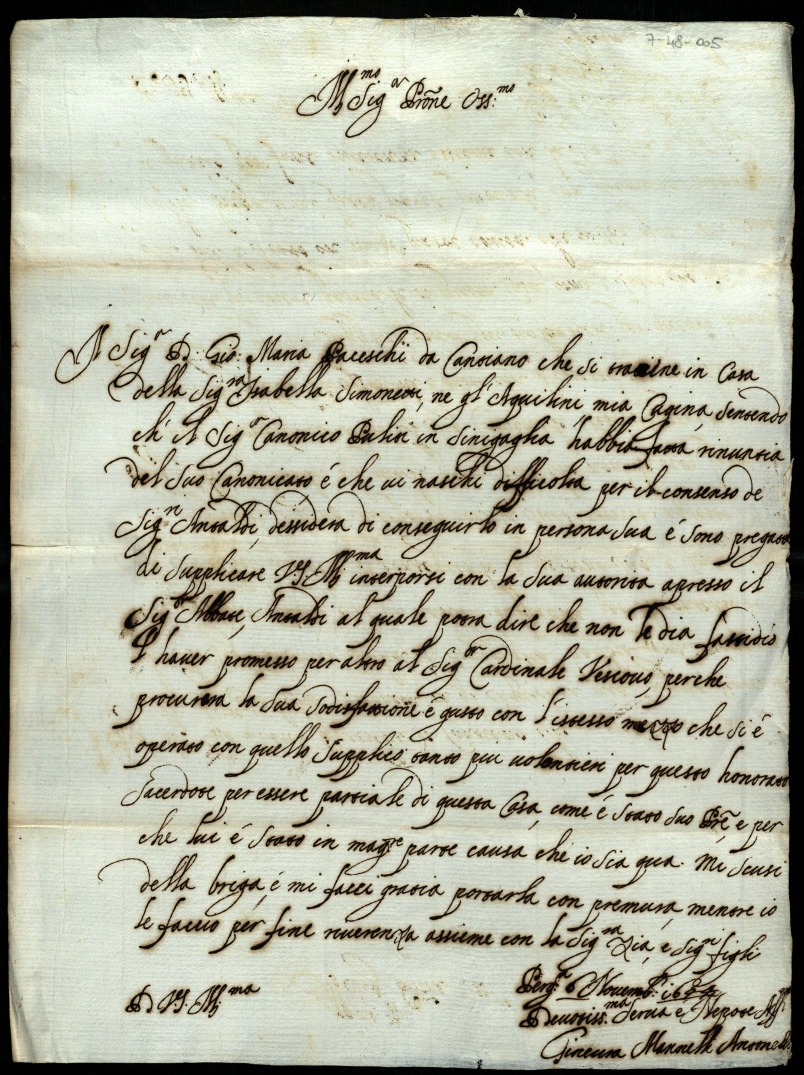 7-48-005
Ill.mo Sig.or Prõne Oss.mo
Il Sig.r D. Gio: Maria Paceschi da Cantiano che si tratiene in Casa
della Sig.ra Isabella Simonetti, ne gl'Aquilini mia Cugina, sentendo
ch'il Sig.r Canonico in Sinigaglia habbia fatta rinuntia
del suo Canonicato é che vi naschi difficolta per il consenso de
Sig.ri Antaldi, dessidera di conseguirlo in persona sua é sono pregata
di supplicare V.S. Ill.ma interporsi con la sua autorita apresso il
Sig.r Abbate Antaldi al quale potra dire che non le dia fastidio
l'haver promesso per altro al Sig.or Cardinale Vescovo, perche
procurera la sua sodisfatione é gusto con l'istesso mezzo che si é
operato con quello supplico tanto piu volontieri per questo honorato
Sacerdote per essere partiale di questa Casa, come é stato suo Prẽ e per
che lui é stato in mag.re parte causa che io sia qua. Mi scusi
della briga, é mi facci gratia portarla con premura, mentre io
le faccio per fine riverenza assieme con la Sig.ra Zia, e Sig.ri figli
D V.S. Ill.ma
Perg.a 6 Novemb.
Devotiss.ma Serva e Nepote Aff.
Ginevra Mannelli